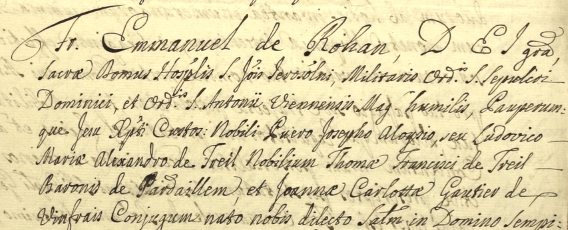 Fr. Emmanuel de Rohan, D E I grã,
Sacræ Domus Hosp̃lis S. Jõis Ierosolni, Militaris Ord.s S. Sepulcri
Dominici, et Ord.s S. Antonii Viennensis Mag.r humilis, Pauperum-
que Jesu Xp̃ti Custos: Nobili Puero Josepho Aloysio, seu Ludovico
Mariæ Alexandro de Treil Nobilium Thomæ Francisci de Treil
Baronis de Pardaillem, et Joannæ Carlottæ Gautier de
Vinfrais Conjugum nato nobis dilecto Salm̃ in Domino Sempi-